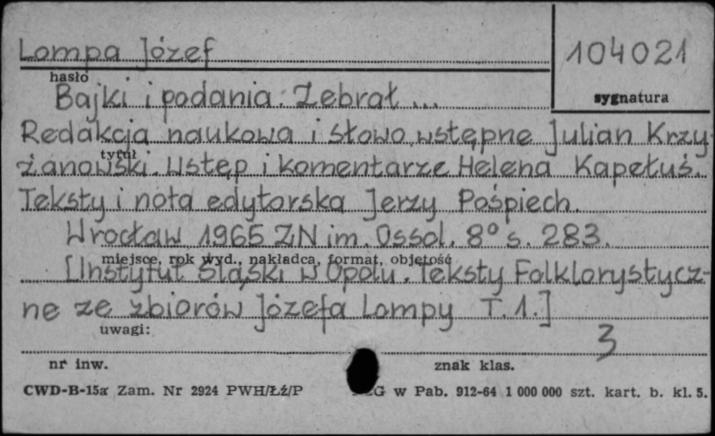 Lompa Józef
104021
hasło
Bajki i podania. Zebrał ...
sygnatura
Redakcja naukowa i słowo wstępne Julian Krzy-
tytuł
żanowski. Wstęp i komentarze Helena Kapełuś.
Teksty i nota edytorska Jerzy Pośpiech.
Wrocław 1965 ZN im. Ossol. 8° s. 283.
miejsce, rok wyd., nakładca, format, objętość
[Instytut Śląski w Opolu. Teksty Folklorystycz-
ne ze zbiorów Józefa Lompy T. 1.]
uwagi:
3
nr inw.
znak klas.
CWD-B-15a Zam. Nr 2924 PWH/Łź/P
G w Pab. 912-64 1 000 000 szt. kart. b. kl. 5.